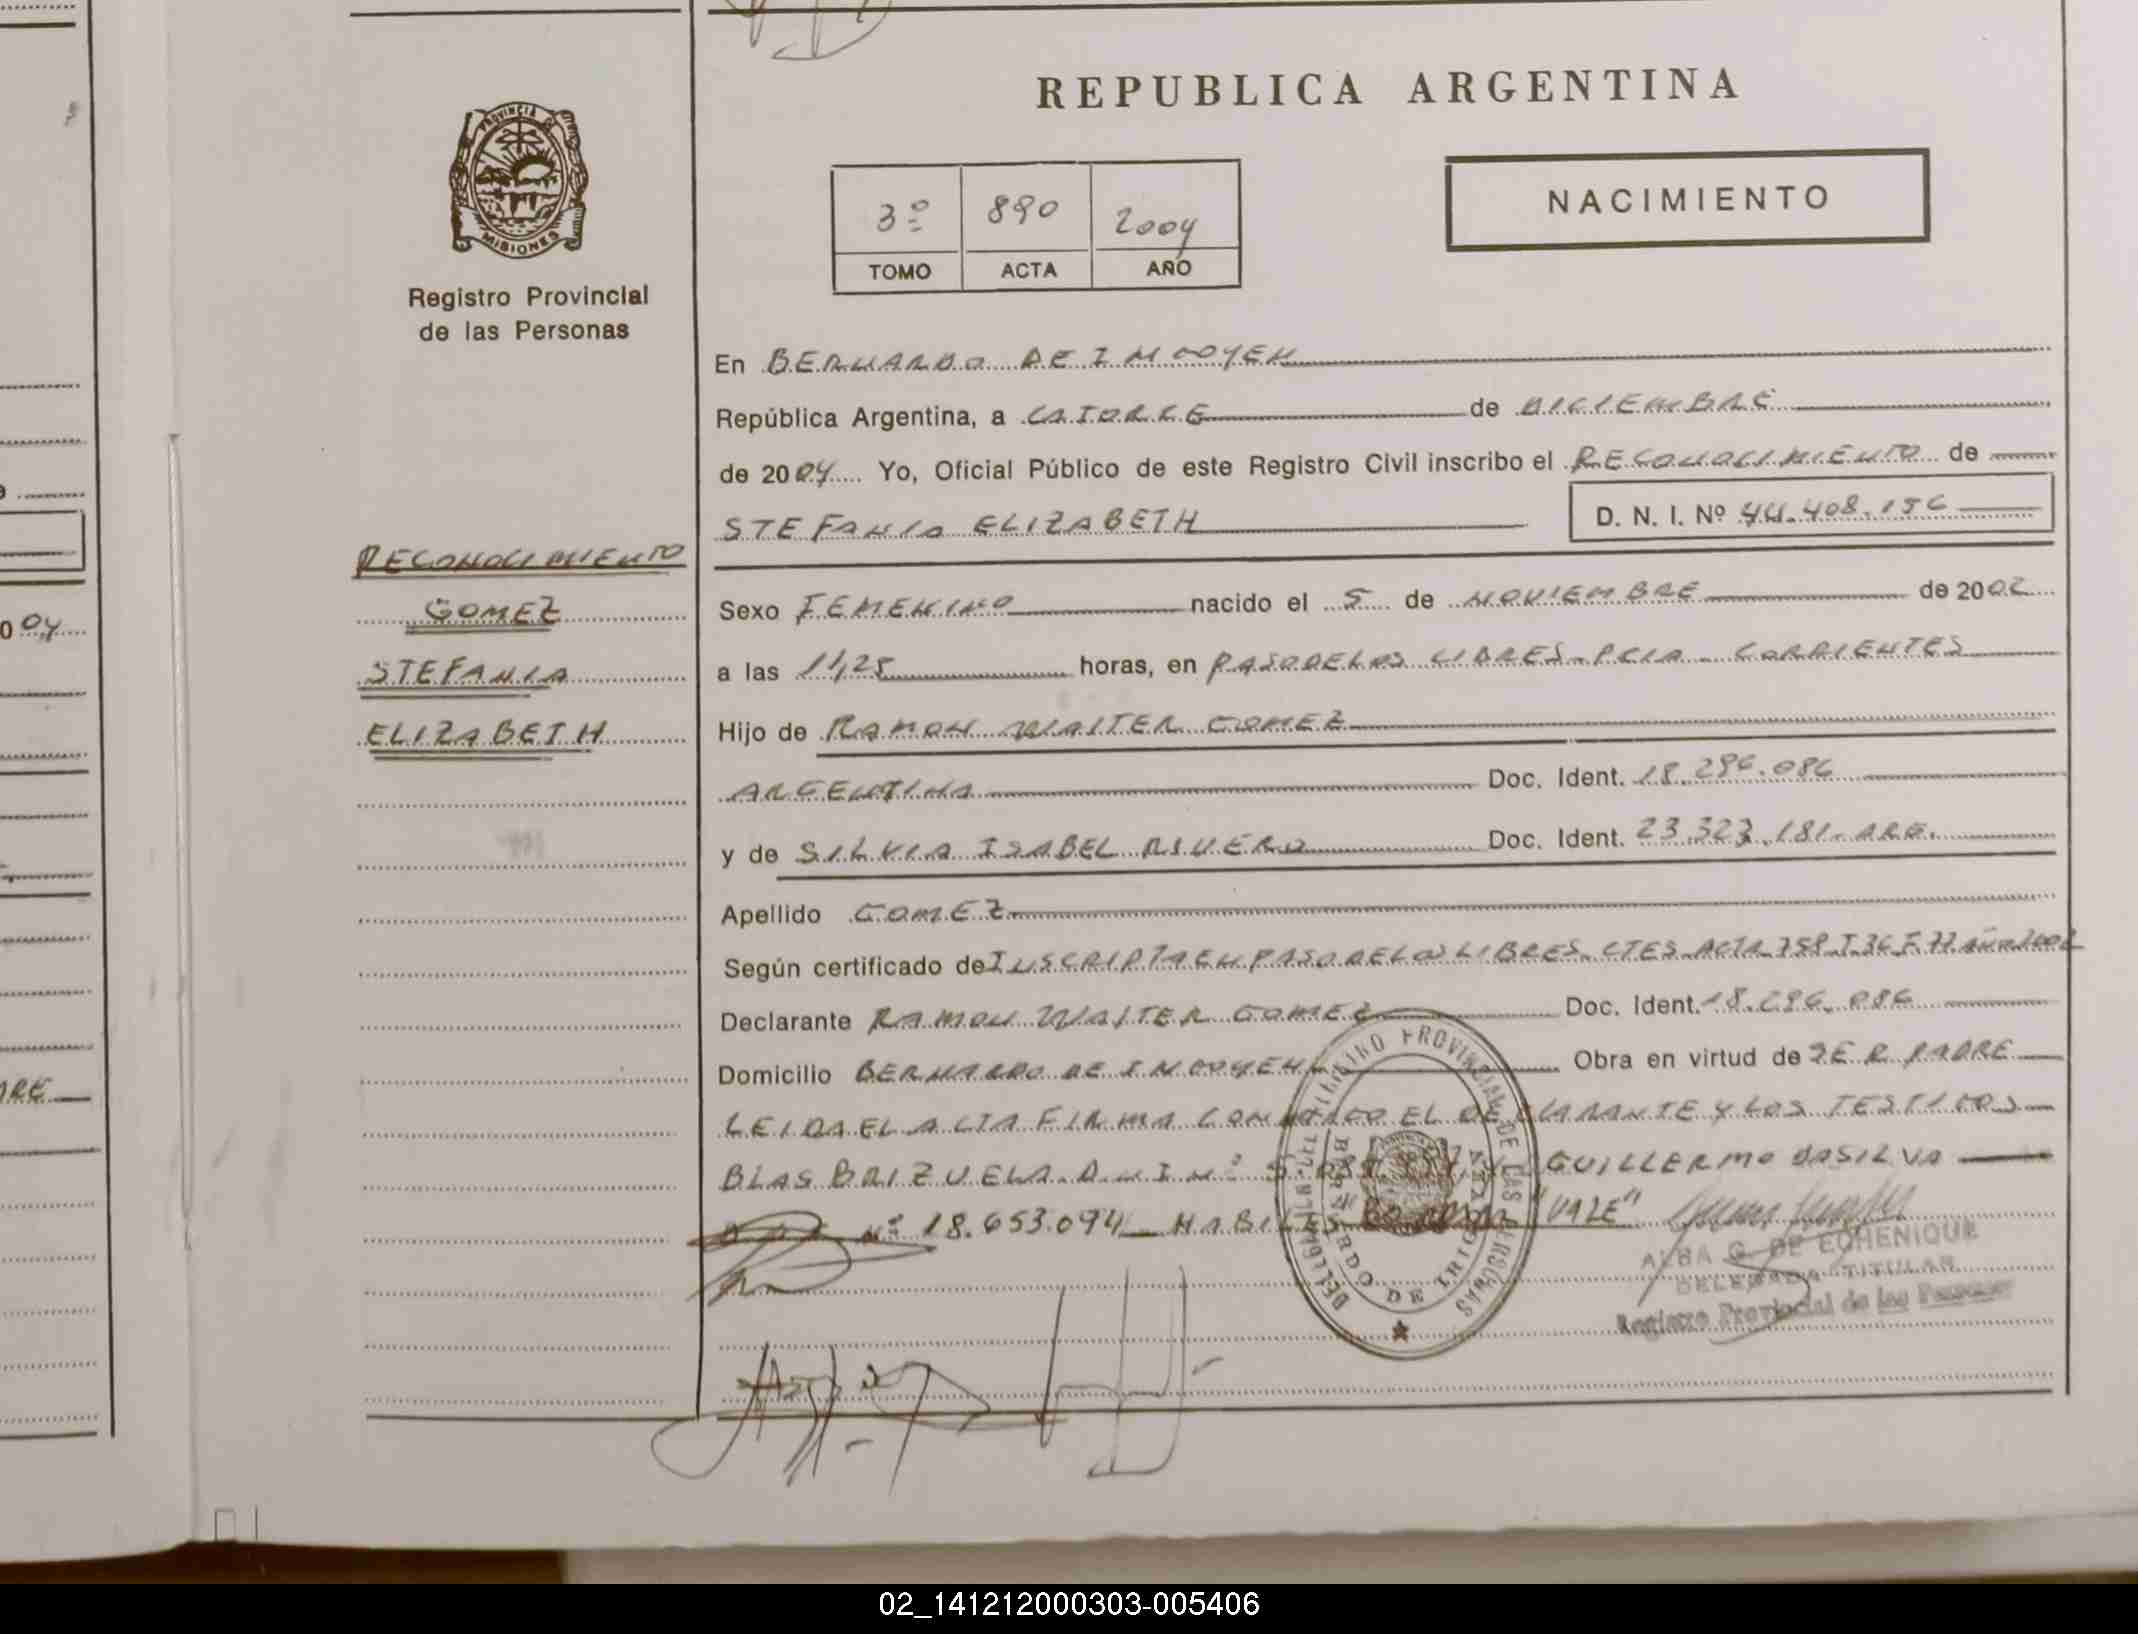 REPUBLICA ARGENTINA
PROVINCIA DE MISIONES
Registro Provincial
de las Personas
3º 890 2004
TOMO ACTA AÑO
NACIMIENTO
En BERNARDO DE IRIGOYEN
República Argentina, a CATORCE de DICIEMBRE
de 2004 Yo, Oficial Público de este Registro Civil inscribo el RECONOCIMIENTO de
STEFANIA ELIZABETH D. N. I. Nº 44.408.156
RECONOCIMIENTO
GOMEZ
STEFANIA
ELIZABETH
Sexo FEMENINO nacido el 5 de NOVIEMBRE de 2002
a las 11,25 horas, en PASO DE LOS LIBRES - PCIA - CORRIENTES
Hijo de RAMON WALTER GOMEZ
ARGENTINA Doc. Ident. 18.296.086
y de SILVIA ISABEL RIVERO Doc. Ident. 23.323.181 - ARG.
Apellido GOMEZ
Según certificado de INSCRIPTA EN PASO DE LOS LIBRES - CTES - ACTA 758 T. 36 F. 77 año 2002
Declarante RAMON WALTER GOMEZ Doc. Ident. 18.296.086
Domicilio BERNARDO DE IRIGOYEN Obra en virtud de SER PADRE
LEIDA EL ACTA FIRMA CONMIGO EL DECLARANTE Y LOS TESTIGOS
BLAS BRIZUELA D.N.I Nº GUILLERMO DASILVA
Nº 18.653.094 "VALE"
REGISTRO PROVINCIAL DE LAS PERSONAS
BERNARDO DE IRIGOYEN
ALBA G. DE ECHENIQUE
DELEGADA TITULAR
Registro Provincial de las Personas
0 04
02_141212000303-005406